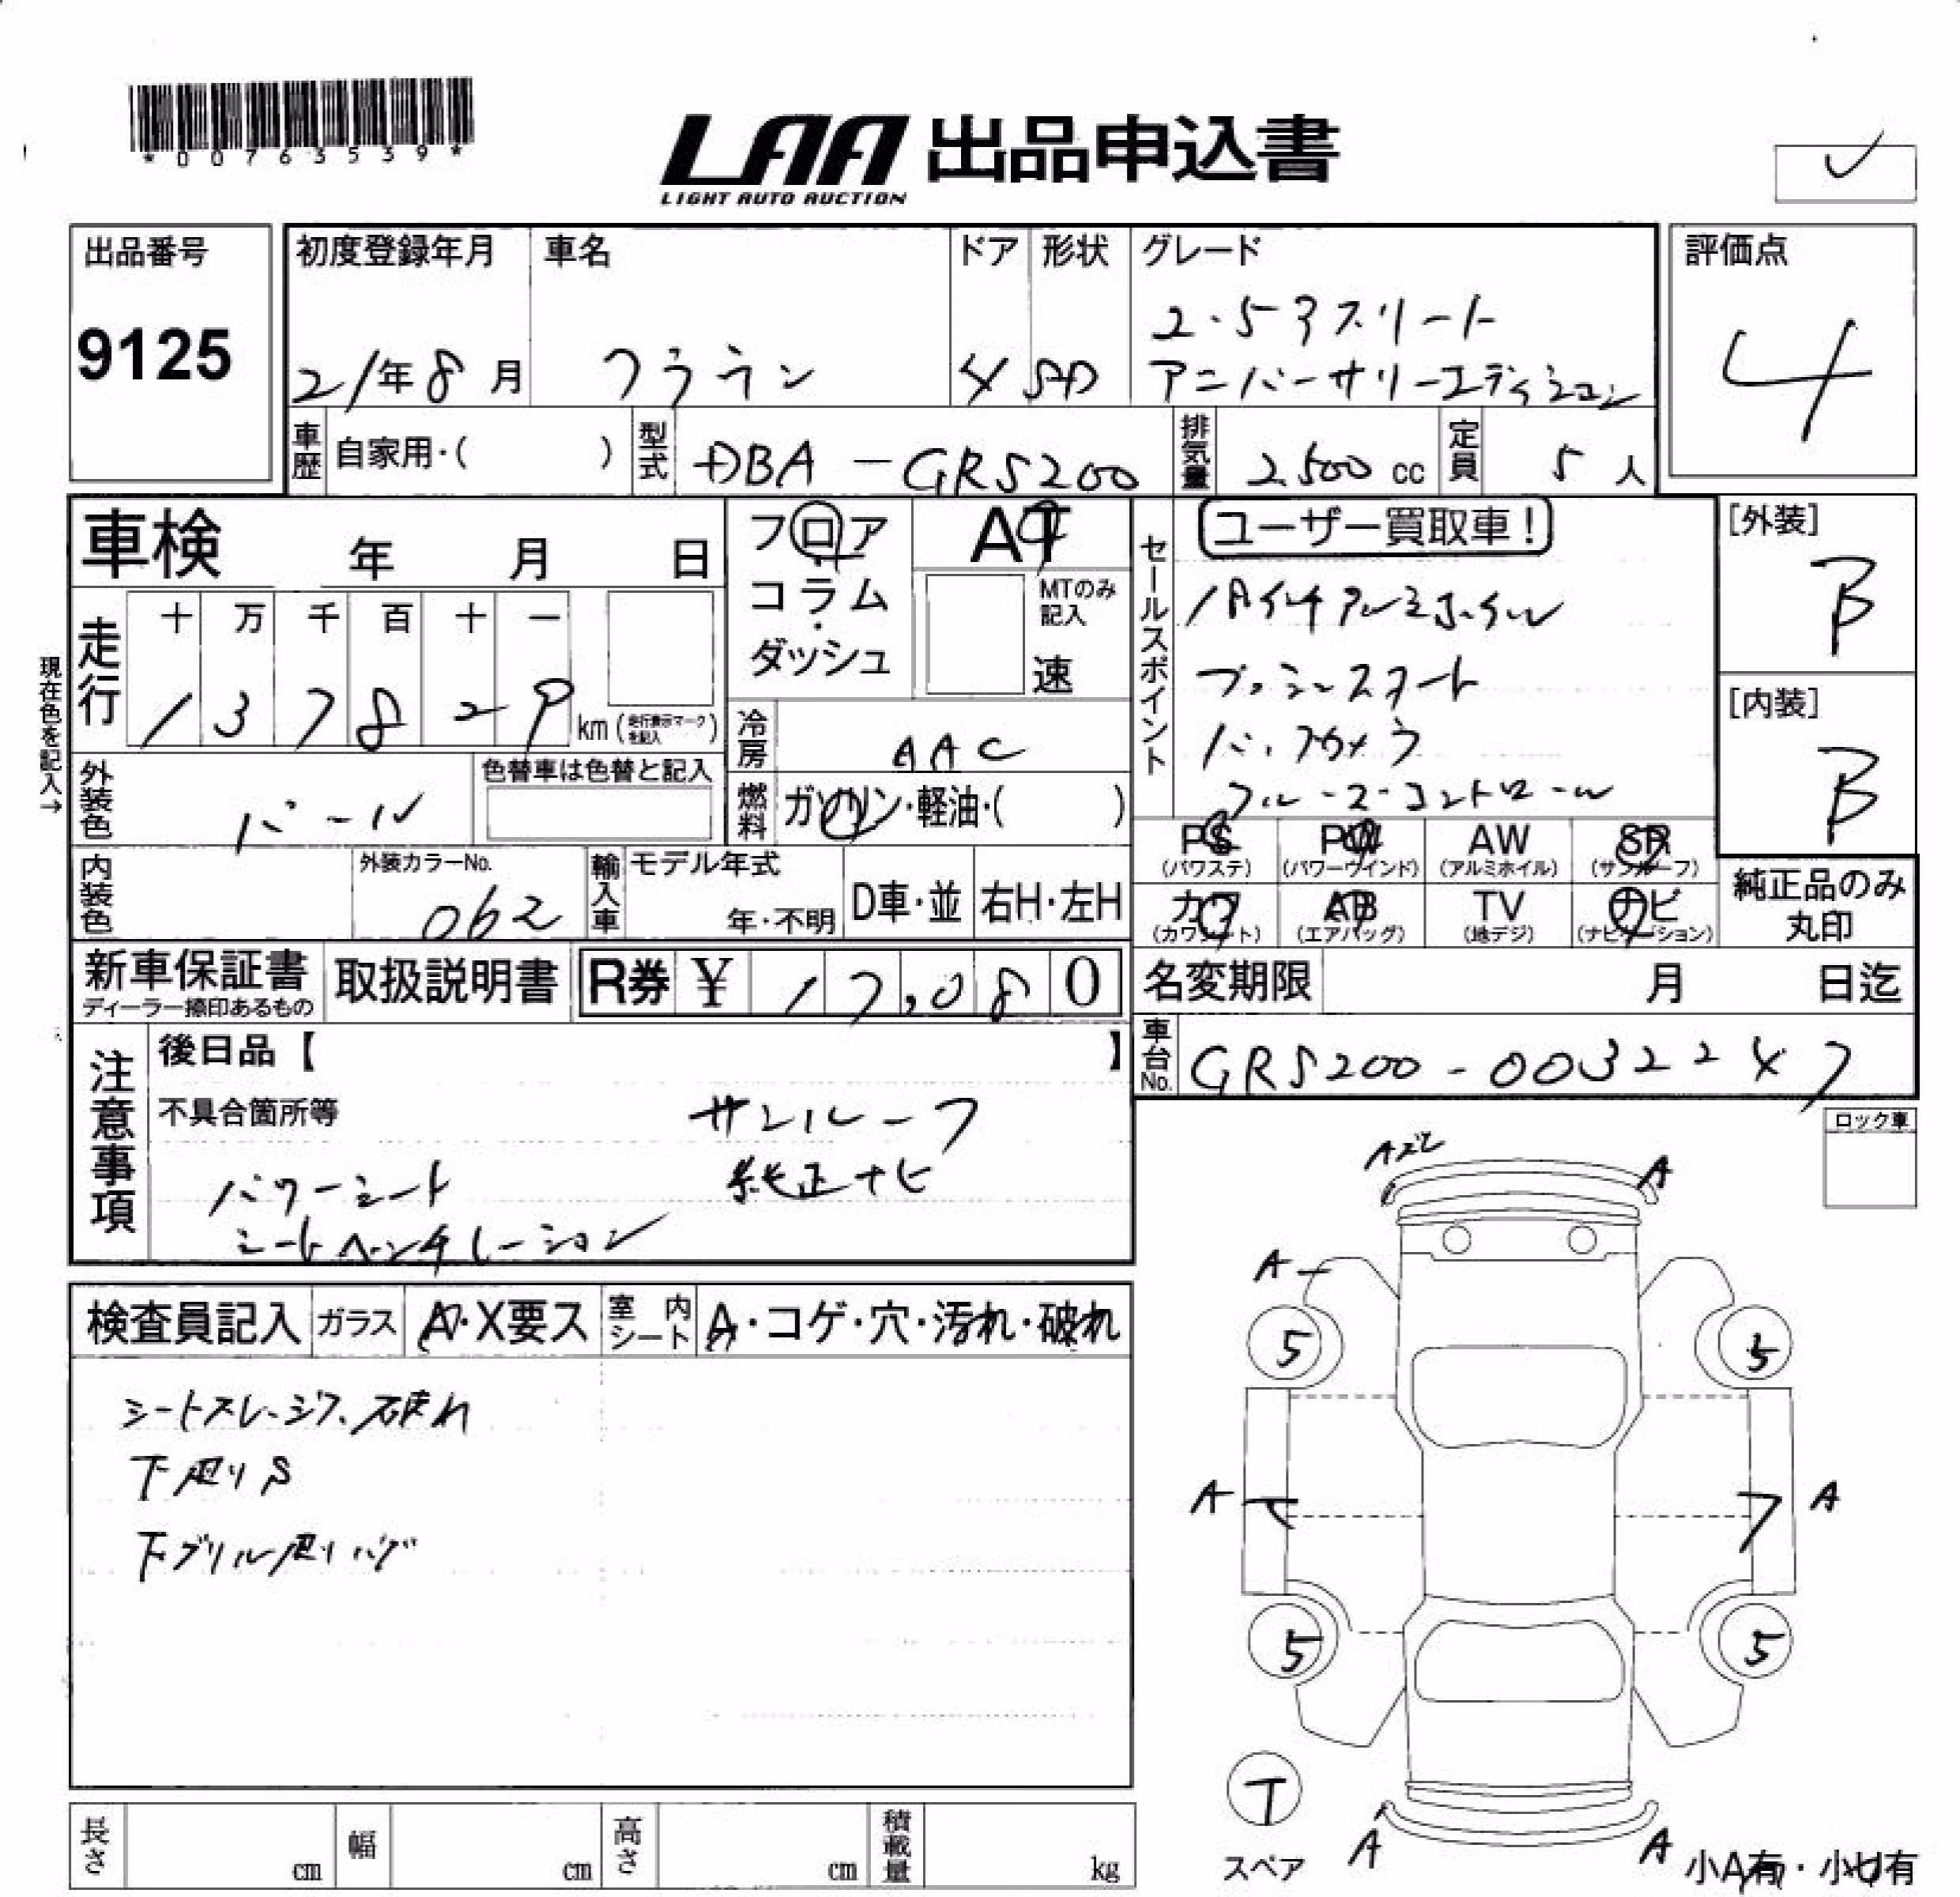 *00763539*
LAA 出品申込書
LIGHT AUTO AUCTION
出品番号
9125
初度登録年月
21年8月
車名
クラウン
ドア
4
形状
SD
グレード
2.5アスリート
アニバーサリーエディション
評価点
4
車歴
自家用・( )
型式
DBA-GRS200
排気量
2500 cc
定員
5人
車検 年 月 日
フロア
・
コラム
・
ダッシュ
AT
MTのみ記入
速
セールスポイント
ユーザー買取車!
18インチアルミホイル
プッシュスタート
バックカメラ
クルーズコントロール
[外装]
B
[内装]
B
現在色を記入→
走行
十 万 千 百 十 一
1 3 7 8 2 9
km (走行表示マークを記入)
冷房
AAC
外装色
パール
色替車は色替と記入
燃料
ガソリン・軽油・( )
PS
(パワステ)
PW
(パワーウインド)
AW
(アルミホイル)
SR
(サンルーフ)
内装色
外装カラーNo.
062
輸入車
モデル年式
年・不明
D車・並
右H・左H
カワ
(カワシート)
AB
(エアバッグ)
TV
(地デジ)
ナビ
(ナビゲーション)
純正品のみ
丸印
新車保証書
ディーラー捺印あるもの
取扱説明書
R券 ¥ 17,080
名変期限 月 日迄
車台No.
GRS200-0032247
注意事項
後日品【 】
不具合箇所等
サンルーフ
パワーシート
純正ナビ
シートベンチレーション
ロック車
検査員記入
ガラス
A・X要ス
室内シート
A・コゲ・穴・汚れ・破れ
シートスレ・シワ、破れ
下廻りS
A
A
A
5
5
A
A
5
5
T
スペア
A
A
小A有・小U有
長さ cm
幅 cm
高さ cm
積載量 kg